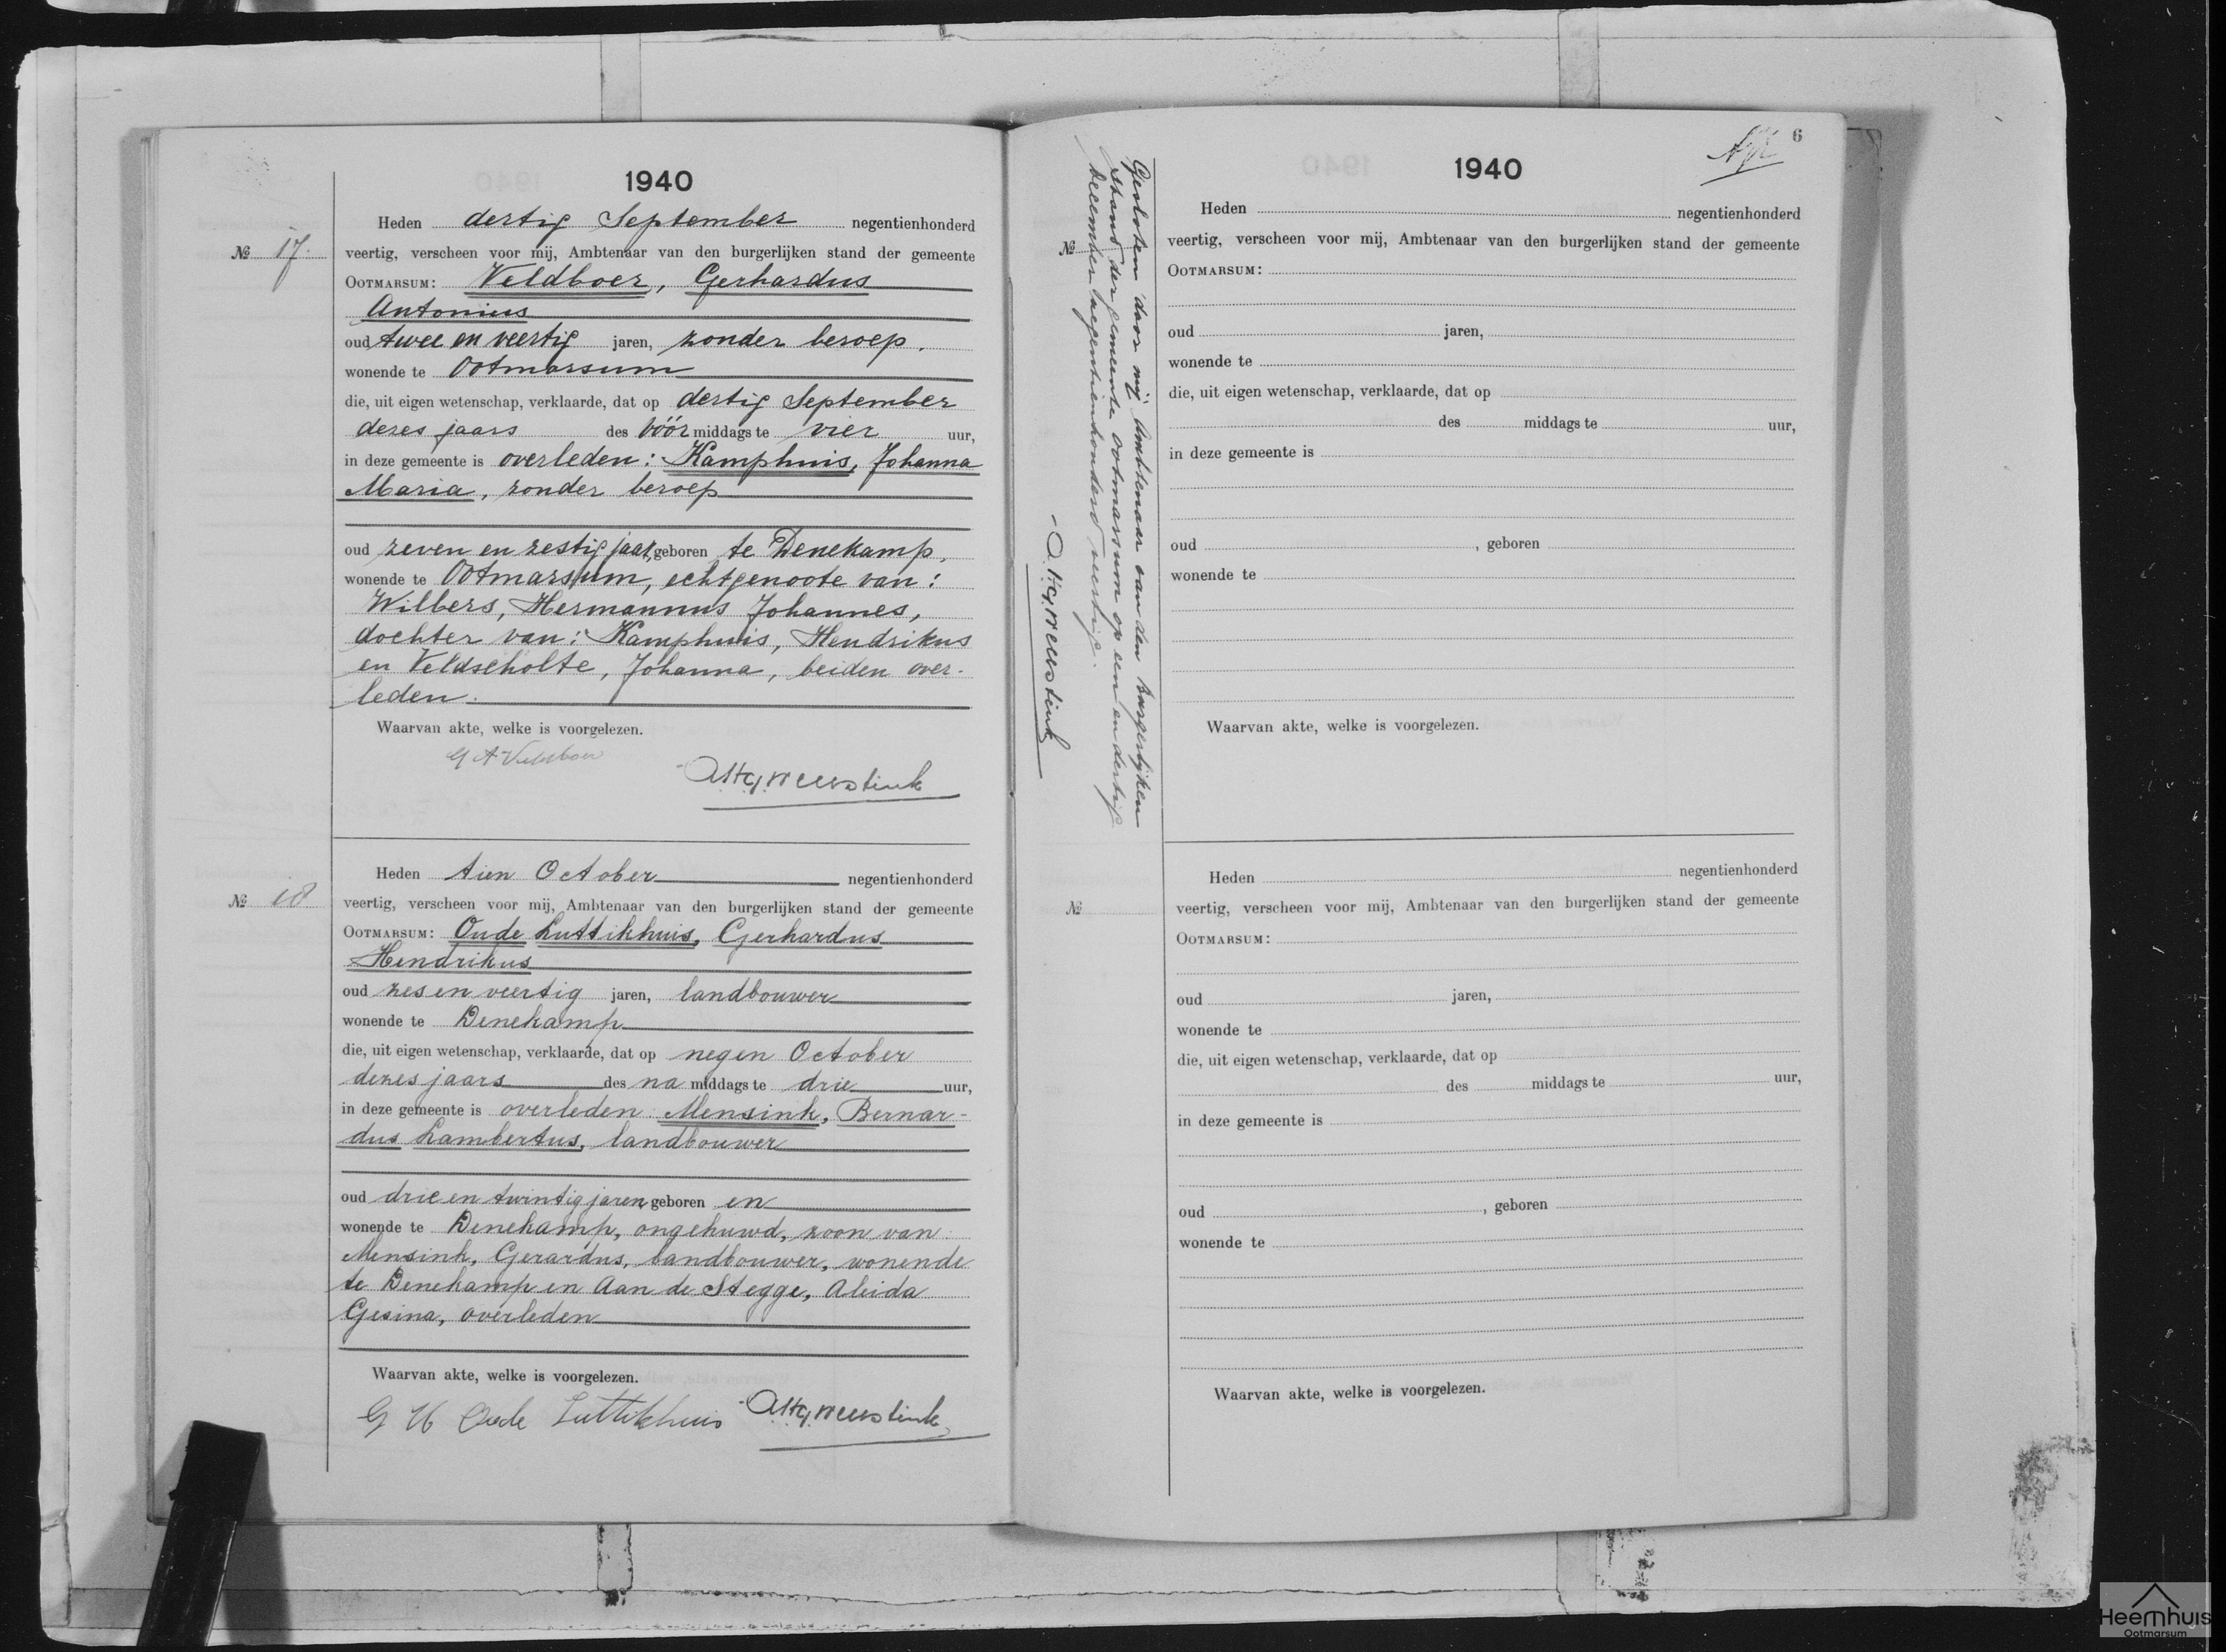 1940
Heden dertig September negentienhonderd
№ 17. veertig, verscheen voor mij, Ambtenaar van den burgerlijken stand der gemeente
OOTMARSUM: Veldboer, Gerhardus
Antonius
oud twee en veertig jaren, zonder beroep.
wonende te Ootmarsum
die, uit eigen wetenschap, verklaarde, dat op dertig September
dezes jaars des vóór middags te vier uur,
in deze gemeente is overleden: Kamphuis, Johanna
Maria, zonder beroep
oud zeven en zestig jaar, geboren te Denekamp,
wonende te Ootmarsum, echtgenoote van:
Wilbers, Hermannus Johannes,
dochter van: Kamphuis, Hendrikus
en Veldscholte, Johanna, beiden over-
leden.
Waarvan akte, welke is voorgelezen.
G A Veldboer
Heden tien October negentienhonderd
№ 18 veertig, verscheen voor mij, Ambtenaar van den burgerlijken stand der gemeente
OOTMARSUM: Oude Luttikhuis, Gerhardus
Hendrikus
oud zes en veertig jaren, landbouwer
wonende te Denekamp
die, uit eigen wetenschap, verklaarde, dat op negen October
dezes jaars des na middags te drie uur,
in deze gemeente is overleden: Mensink, Bernar-
dus Lambertus, landbouwer
oud drie en twintig jaren, geboren en
wonende te Denekamp, ongehuwd, zoon van:
Mensink, Gerardus, landbouwer, wonende
te Denekamp en Aan de Stegge, Aleida
Gesina, overleden
Waarvan akte, welke is voorgelezen.
G H Oude Luttikhuis
Gesloten door mij Ambtenaar van den burgerlijken
stand der gemeente Ootmarsum op een en dertig
december negentienhonderd veertig.
6
1940
Heden negentienhonderd
№ veertig, verscheen voor mij, Ambtenaar van den burgerlijken stand der gemeente
OOTMARSUM:
oud jaren,
wonende te
die, uit eigen wetenschap, verklaarde, dat op
des middags te uur,
in deze gemeente is
oud , geboren
wonende te
Waarvan akte, welke is voorgelezen.
Heden negentienhonderd
№ veertig, verscheen voor mij, Ambtenaar van den burgerlijken stand der gemeente
OOTMARSUM:
oud jaren,
wonende te
die, uit eigen wetenschap, verklaarde, dat op
des middags te uur,
in deze gemeente is
oud , geboren
wonende te
Waarvan akte, welke is voorgelezen.
Heemhuis
Ootmarsum